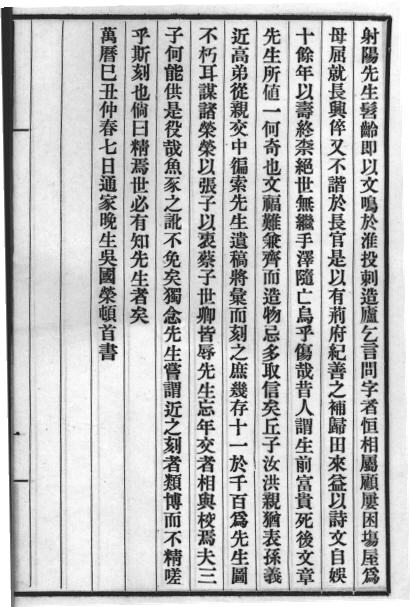 射陽先生髫齡即以文鳴於淮投刺造廬乞言問字者恒相屬顧屢困塲屋爲
母屈就長興倅又不諧於長官是以有荊府紀善之補歸田來益以詩文自娛
十餘年以壽終柰絕世無繼手澤隨亡烏乎傷哉昔人謂生前富貴死後文章
先生所値一何奇也文福難兼齊而造物忌多取信矣丘子汝洪親猶表孫義
近高弟從親交中徧索先生遺稿將彙而刻之庶幾存十一於千百爲先生圖
不朽耳謀諸榮榮以張子以衷蔡子世卿皆辱先生忘年交者相與校焉夫三
子何能供是役哉魚豕之訛不免矣獨念先生嘗謂近之刻者類博而不精嗟
乎斯刻也倘曰精焉世必有知先生者矣
萬曆巳丑仲春七日通家晚生吳國榮頓首書